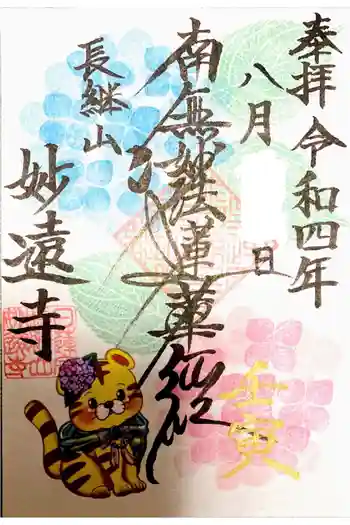 奉拝
令和四年
八月
日
南無妙法蓮華経
長継山
妙遠寺
壬寅